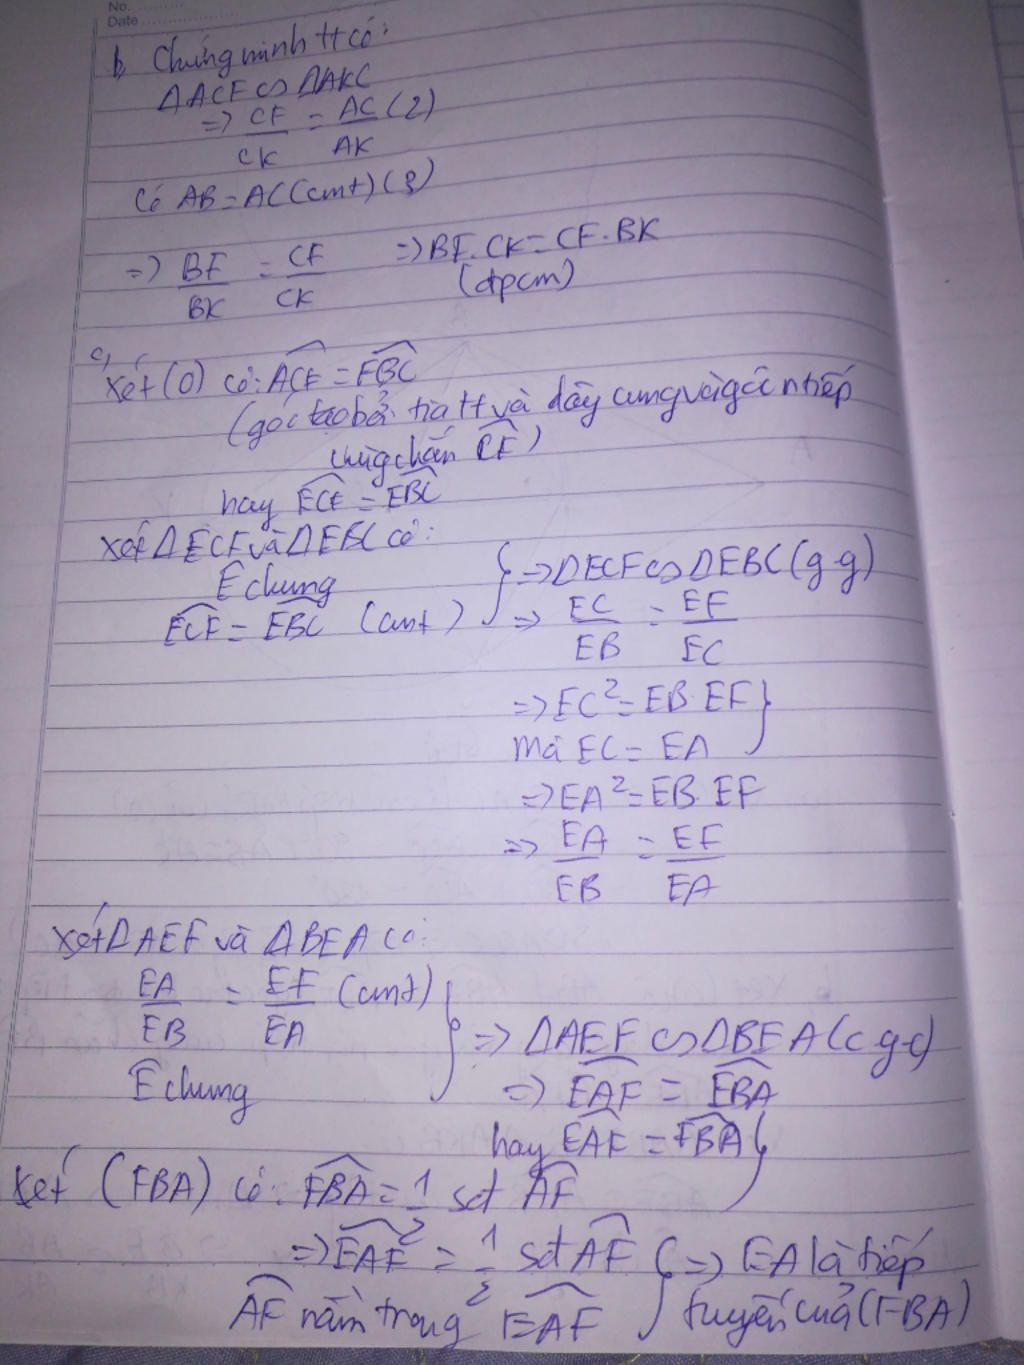 No.
Date
b, Chứng minh tt có:
ΔACF ∽ ΔAKC
=> CF/CK = AC/AK (2)
Có AB = AC (cmt) (3)
=> BF/BK = CF/CK => BF.CK = CF.BK
(đpcm)
c,
Xét (O) có: ACF = FBC
(góc tạo bởi tia tt và dây cung và góc nt tiếp
cùng chắn CF)
hay ECF = EBC
Xét ΔECF và ΔEBC có:
E chung
ECF = EBC (cmt)
} => ΔECF ∽ ΔEBC (g-g)
=> EC/EB = EF/EC
=> EC² = EB.EF
Mà EC = EA }
=> EA² = EB.EF
=> EA/EB = EF/EA
Xét ΔAEF và ΔBEA có:
EA/EB = EF/EA (cmt)
E chung
} => ΔAEF ∽ ΔBEA (c-g-c)
=> EAF = EBA
hay EAF = FBA }
Xét (FBA) có: FBA = 1/2 sđ AF
=> EAF = 1/2 sđ AF
AF nằm trong EAF
} => EA là tiếp
tuyến của (FBA)